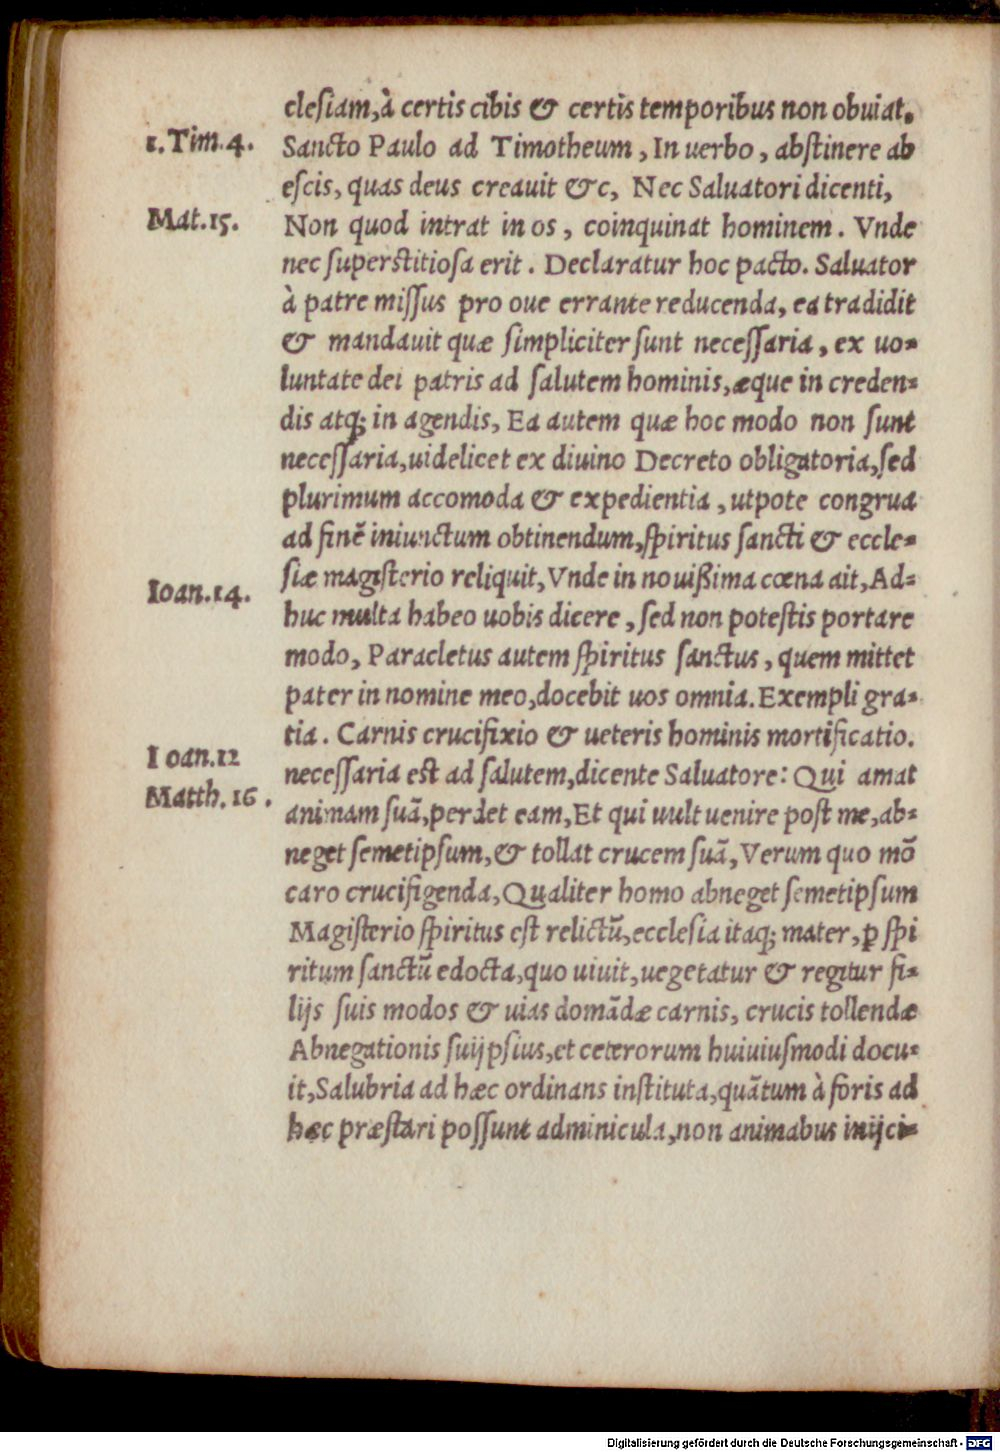 clesiam,à certis cibis & certis temporibus non obuiat.
1.Tim.4.
Sancto Paulo ad Timotheum, In uerbo, abstinere ab
escis, quas deus creauit &c, Nec Saluatori dicenti,
Mat.15.
Non quod intrat in os, coinquinat hominem. Vnde
nec superstitiosa erit. Declaratur hoc pacto. Saluator
à patre missus pro oue errante reducenda, ea tradidit
& mandauit quæ simpliciter sunt necessaria, ex uo=
luntate dei patris ad salutem hominis,æque in creden=
dis atq; in agendis, Ea autem quæ hoc modo non sunt
necessaria,uidelicet ex diuino Decreto obligatoria,sed
plurimum accomoda & expedientia, utpote congrua
ad finẽ iniunctum obtinendum,spiritus sancti & eccle=
siæ magisterio reliquit, Vnde in nouißima cœna ait, Ad=
Ioan.14.
huc multa habeo uobis dicere, sed non potestis portare
modo, Paracletus autem spiritus sanctus, quem mittet
pater in nomine meo,docebit uos omnia. Exempli gra=
tia. Carnis crucifixio & ueteris hominis mortificatio.
Ioan.12
necessaria est ad salutem,dicente Saluatore: Qui amat
Matth.16.
animam suã,perdet eam, Et qui uult uenire post me,ab=
neget semetipsum,& tollat crucem suã, Verum quo mõ
caro crucifigenda, Qualiter homo abneget semetipsum
Magisterio spiritus est relictũ,ecclesia itaq; mater, ꝑ spi
ritum sanctũ edocta,quo uiuit,uegetatur & regitur fi=
lijs suis modos & uias domãdæ carnis, crucis tollendæ
Abnegationis suijpsius,et ceterorum huiuiusmodi docu=
it,Salubria ad hæc ordinans instituta,quãtum à foris ad
hæc præstari possunt adminicula,non animabus inijci=
Digitalisierung gefördert durch die Deutsche Forschungsgemeinschaft - DFG